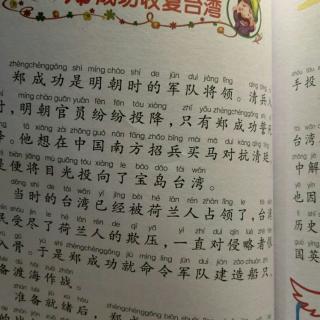 成功收复台湾
zhèngchénggōng shì míng cháo shí de jūn duì jiàng lǐng
郑成功是明朝时的军队将领。清兵
míng cháo guān yuán fēn fēn tóu xiáng zhǐ yǒu zhèngchénggōng
时,明朝官员纷纷投降,只有郑成功誓
tā xiǎng zài zhōng guó nán fāng zhāo bīng mǎi mǎ duì kàng qīng
。他想在中国南方招兵买马对抗清廷
biàn jiāng mù guāng tóu xiàng le bǎo dǎo tái wān
是便将目光投向了宝岛台湾。
dāng shí de tái wān yǐ jīng bèi hé lán rén zhàn lǐng le tái
当时的台湾已经被荷兰人占领了,台湾
shòu jìn le hé lán rén de qī yā yì zhí duì qīn lüè zhě
民受尽了荷兰人的欺压,一直对侵略者恨
gǔ yú shì zhèngchénggōng jiù mìng lìng jūn duì jiàn zào chuán zhī
入骨。于是郑成功就命令军队建造船只,
dù hǎi zuò zhàn
备渡海作战。
zhǔn bèi jiù xù hòu
准备就绪后,郑成功
手投
台湾
中解
也因
历史
国英